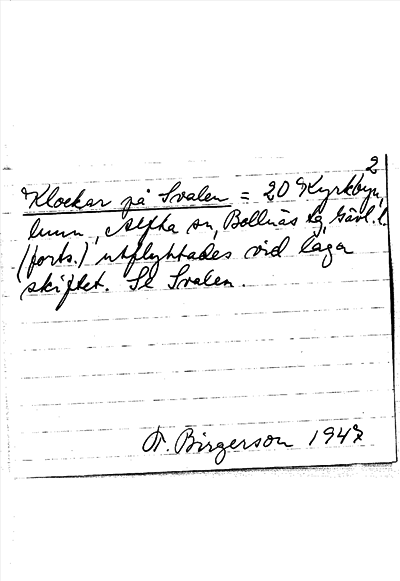 2
Klockar på Svalen = 20 Kyrkbyn,
lunn, Alfta sn, Bollnäs tg, Gävl. l.
(forts.) utflyttades vid laga
skiftet. Se Svalen.
F. Birgerson 1947